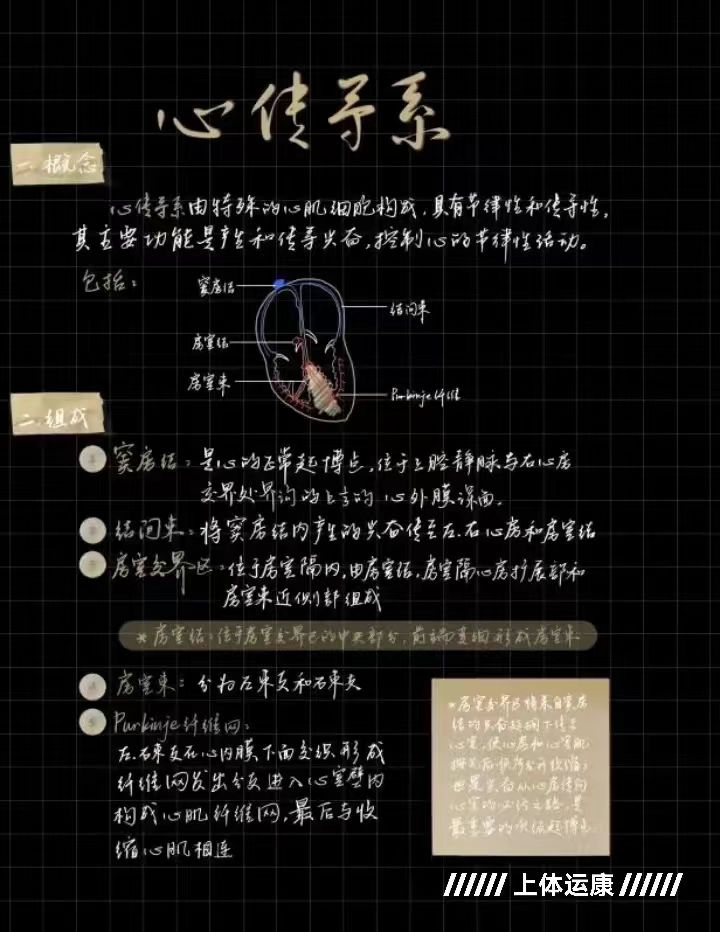 心传导系
一.概念
心传导系由特殊的心肌细胞构成,具有节律性和传导性,
其主要功能是产生和传导兴奋,控制心的节律性活动。
包括:
窦房结
结间束
房室结
房室束
Purkinje纤维
二.组成
窦房结:是心的正常起搏点,位于上腔静脉与右心房
交界处界沟的上1/3的心外膜深面。
结间束:将窦房结内产生的兴奋传至左.右心房和房室结
房室交界区:位于房室隔内,由房室结,房室隔心房扩展部和
房室束近侧部组成
*房室结:位于房室交界区的中央部分,前端变细形成房室束
房室束:分为左束支和右束支
Purkinje纤维网:
左.右束支在心内膜下面交织形成
纤维网发出分支进入心室壁内
构成心肌纤维网,最后与收
缩心肌相连
*房室交界区将来自窦房
结的兴奋延搁下传至
心室,使心房和心室肌
按先后顺序分开收缩;
也是兴奋从心房传向
心室的必经之路,是
最重要的次级起搏点
上体运康